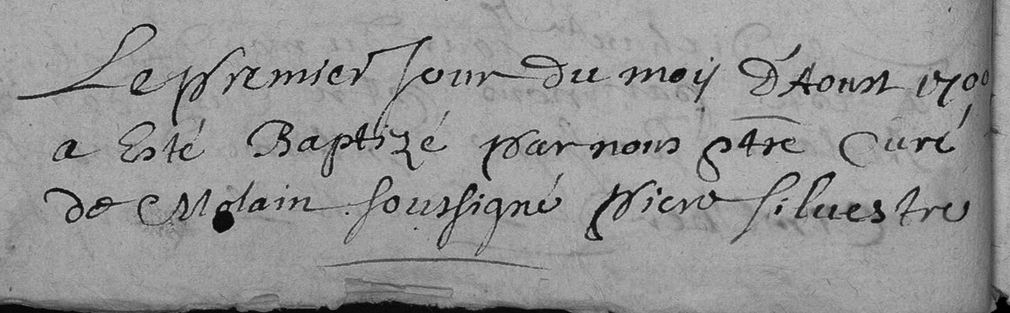 Le premier Jour du moij D'Aoust 1700
a Esté Baptizé par nous ptre Curé
de Molain soussigné pierre silvestre